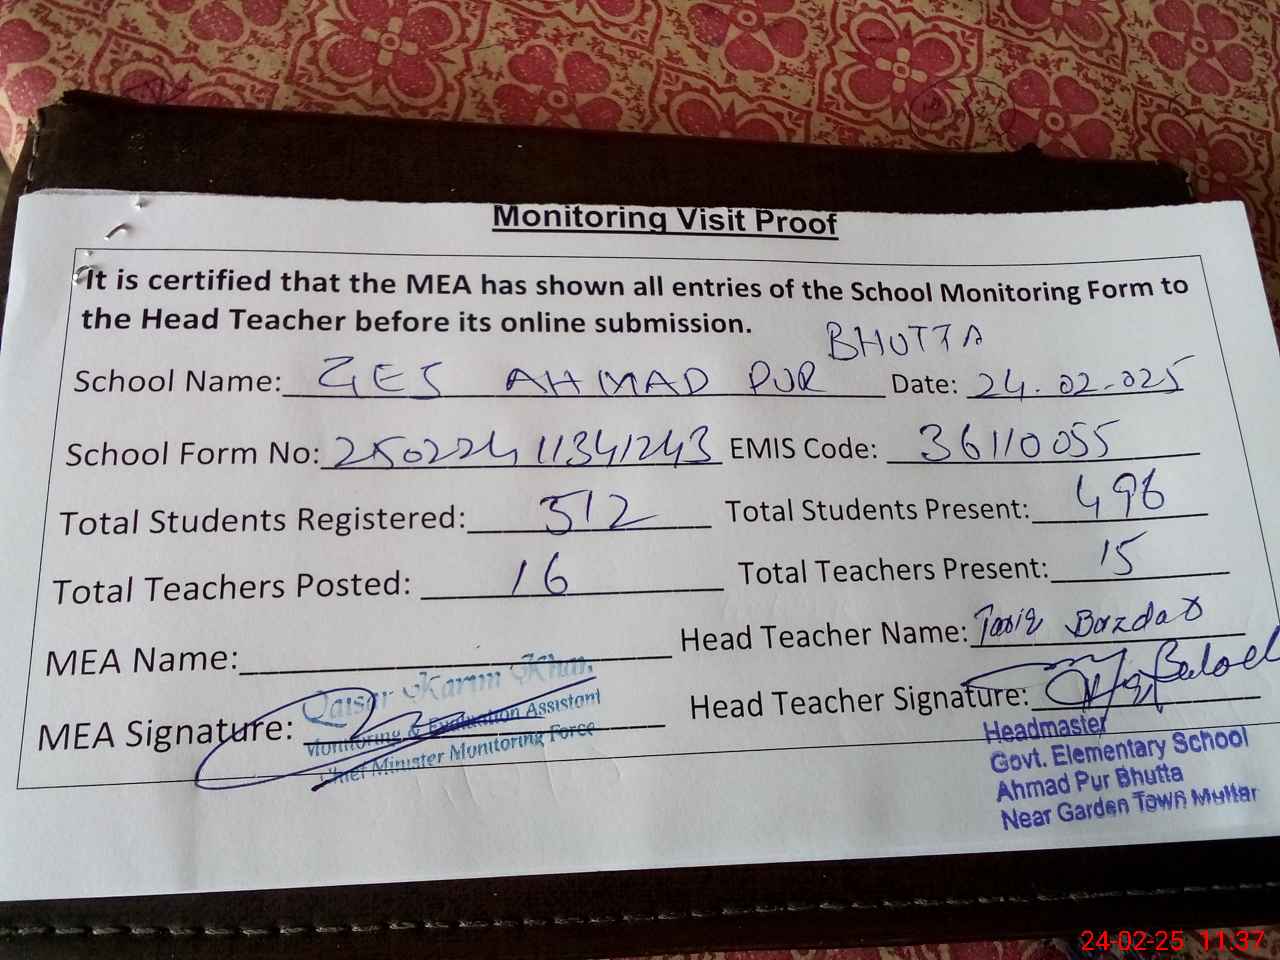 Monitoring Visit Proof
It is certified that the MEA has shown all entries of the School Monitoring Form to
the Head Teacher before its online submission.
School Name: GES AHMAD PUR BHUTTA Date: 24.02.025
School Form No: 25022411341243 EMIS Code: 36110055
Total Students Registered: 512 Total Students Present: 496
Total Teachers Posted: 16 Total Teachers Present: 15
MEA Name: Head Teacher Name: Tariq Bozdar
Qaisar Karim Khan
MEA Signature: Head Teacher Signature:
Monitoring & Evaluation Assistant
Chief Minister Monitoring Force
Headmaster
Govt. Elementary School
Ahmad Pur Bhutta
Near Garden Town Multan
24-02-25 11:37